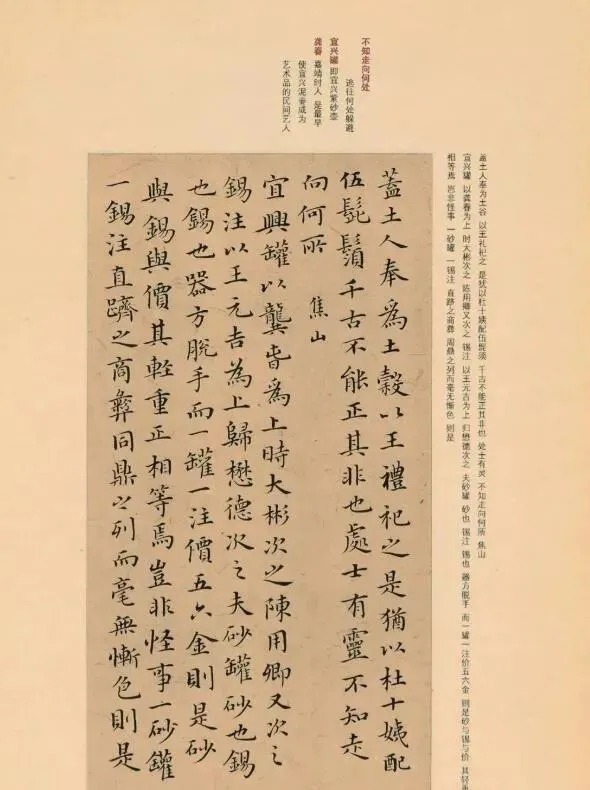 不知走向何处
逃往何处躲避
宜兴罐 即宜兴紫砂壶
龚春 嘉靖时人 是最早
使宜兴泥壶成为
艺术品的民间艺人
盖土人奉为土谷 以王礼祀之 是犹以杜十姨配伍髭须 千古不能正其非也 处士有灵 不知走向何所 焦山
宜兴罐 以龚春为上 时大彬次之 陈用卿又次之 锡注 以王元吉为上 归懋德次之 夫砂罐 砂也 锡注 锡也 器方脱手 而一罐一注价五六金 则是砂与锡与价 其轻重
相等焉 岂非怪事 一砂罐 一锡注 直跻之商彝 周鼎之列而毫无惭色 则是
蓋土人奉為土穀以王禮祀之是猶以杜十姨配
伍髭鬚千古不能正其非也處士有靈不知走
向何所 焦山
宜興罐以龔春為上時大彬次之陳用卿又次之
錫注以王元吉為上歸懋德次之夫砂罐砂也錫
也錫也器方脫手而一罐一注價五六金則是砂
與錫與價其輕重正相等焉豈非怪事一砂罐
一錫注直躋之商彝周鼎之列而毫無慚色則是